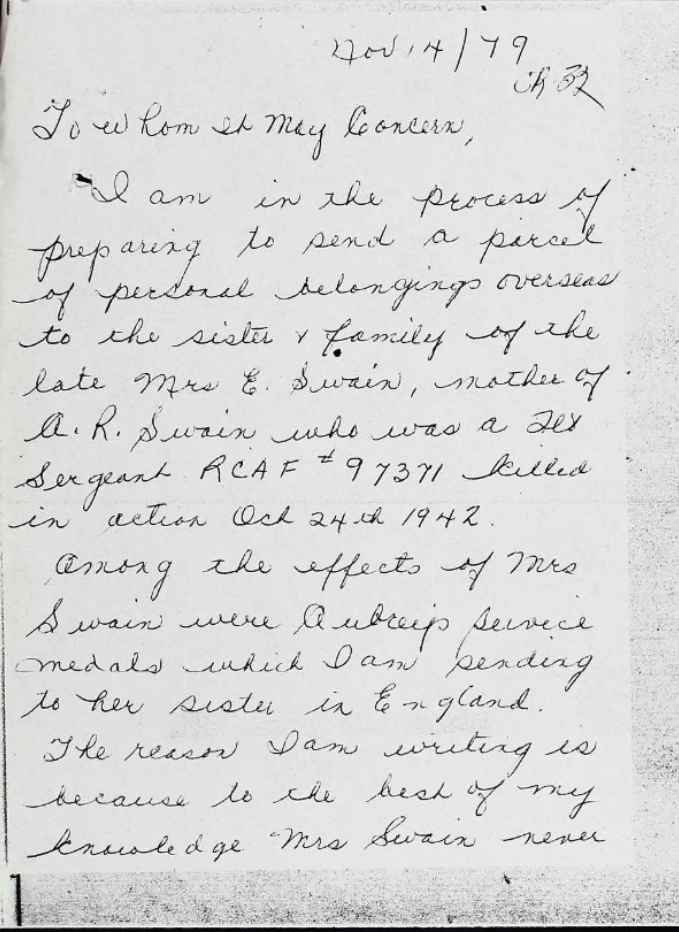 Nov 14/79
To Whom It May Concern,
I am in the process of
preparing to send a parcel
of personal belongings overseas
to the sister & family of the
late Mrs E. Swain, mother of
A. R. Swain who was a
Sergeant RCAF # 97371 killed
in action Oct 24th 1942.
Among the effects of Mrs
Swain were Aubreys service
medals which I am sending
to her sister in England.
The reason I am writing is
because to the best of my
knowledge Mrs Swain never